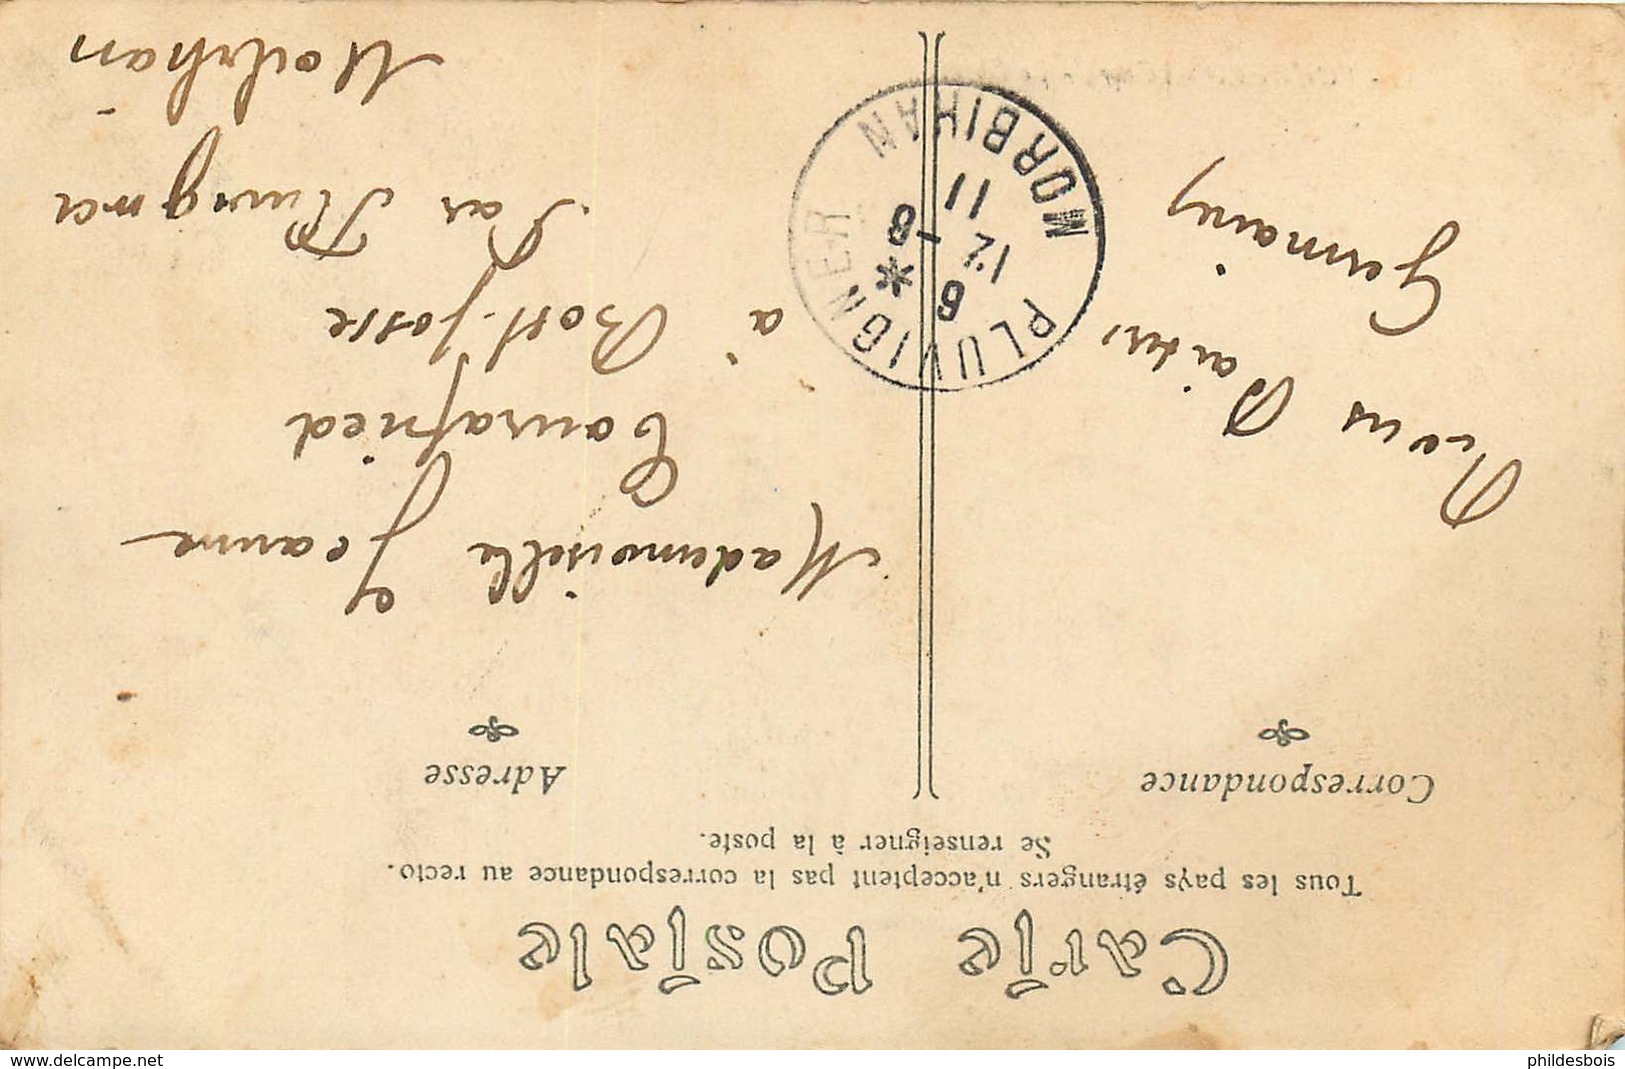 Carte Postale
Tous les pays étrangers n'acceptent pas la correspondance au recto.
Se renseigner à la poste.
Correspondance
Adresse
Mademoiselle Jeanne
à
Par Pluvigner
Morbihan
Germaine
PLUVIGNER
6
12-8
11
MORBIHAN
www.delcampe.net
phildesbois